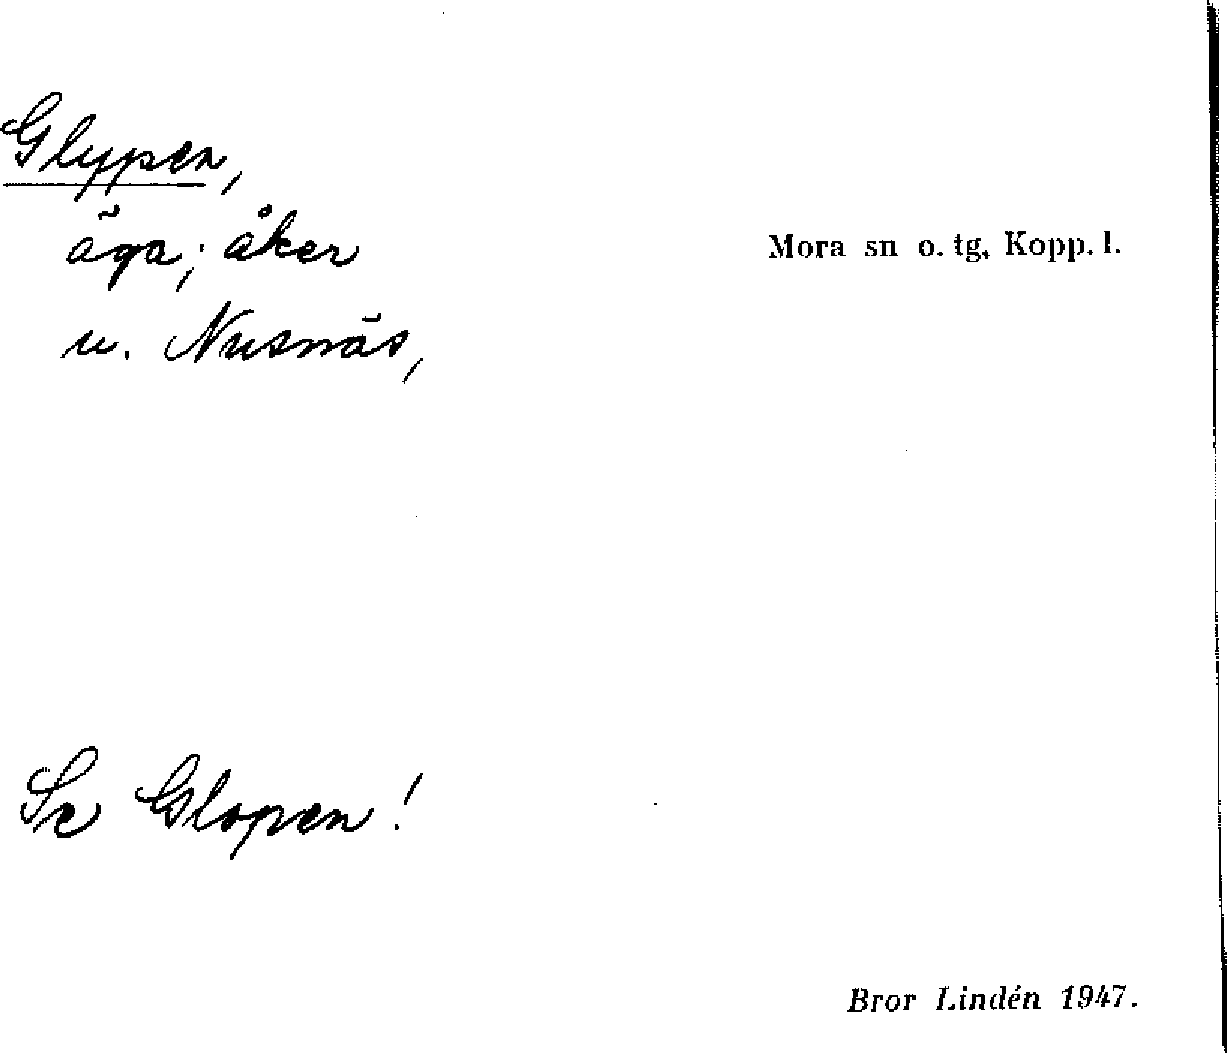 Glypen,
äga; åker
Mora sn o. tg, Kopp. l.
u. Nusnäs,
Se Glopen!
Bror Lindén 1947.